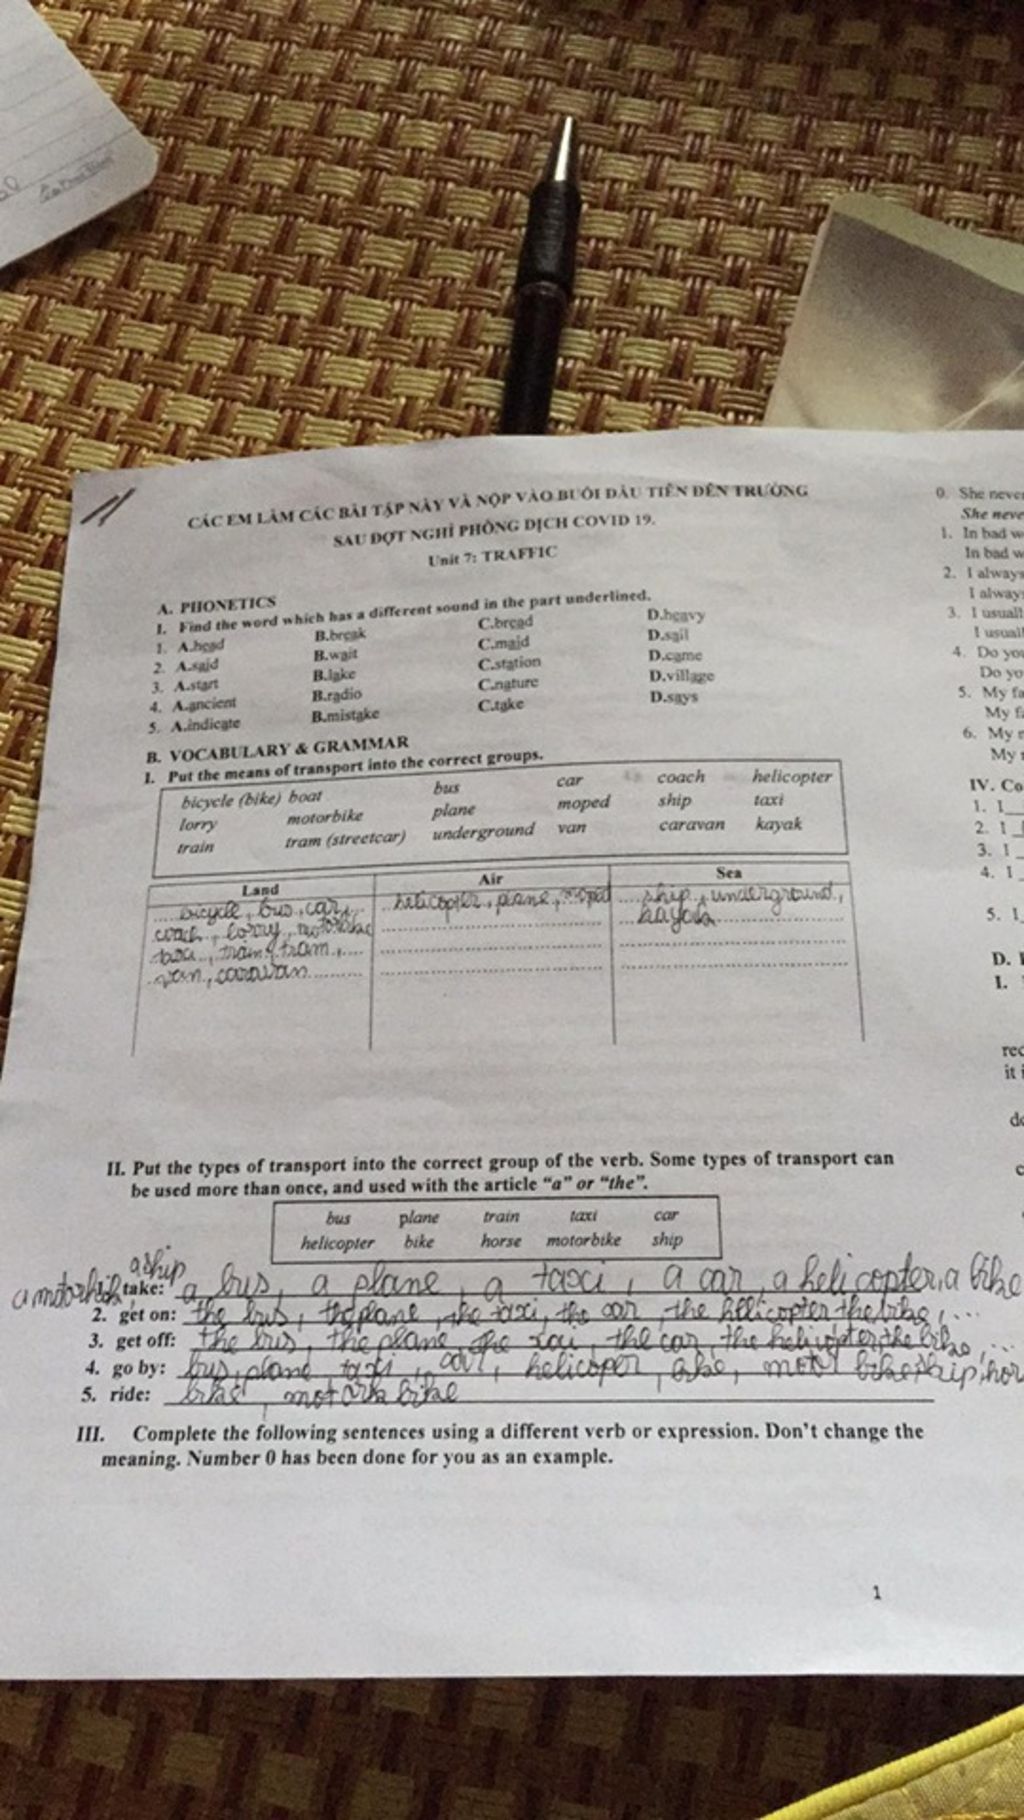 CÁC EM LÀM CÁC BÀI TẬP NÀY VÀ NỘP VÀO BUỔI ĐẦU TIÊN ĐẾN TRƯỜNG
SAU ĐỢT NGHỈ PHÒNG DỊCH COVID 19.
Unit 7: TRAFFIC
A. PHONETICS
I. Find the word which has a different sound in the part underlined.
1. A.head B.break C.bread D.heavy
2. A.said B.wait C.maid D.sail
3. A.start B.lake C.station D.came
4. A.ancient B.radio C.nature D.village
5. A.indicate B.mistake C.take D.says
B. VOCABULARY & GRAMMAR
I. Put the means of transport into the correct groups.
bicycle (bike) boat bus car coach helicopter
lorry motorbike plane moped ship taxi
train tram (streetcar) underground van caravan kayak
Land Air Sea
bicycle, bus, car, helicopter, plane, moped ship, underground,
coach, lorry, motorbike kayak
taxi, train, tram,
van, caravan
II. Put the types of transport into the correct group of the verb. Some types of transport can
be used more than once, and used with the article “a” or “the”.
bus plane train taxi car
helicopter bike horse motorbike ship
a ship
take: a bus, a plane, a taxi, a car, a helicopter, a bike
2. get on: the bus, the plane, the taxi, the car, the hllicopter the bike, ...
3. get off: the bus, the plane, the the car, the helicopter, the bike, ...
4. go by: bus, plane, taxi, car, helicoper, bike, motor bike ship, hor
5. ride: bike, bike
III. Complete the following sentences using a different verb or expression. Don’t change the
meaning. Number 0 has been done for you as an example.
1
0. She never
She neve
1. In bad w
In bad w
2. I always
I always
3. I usuall
I usuall
4. Do you
Do yo
5. My fa
My fa
6. My
My
IV. Co
1. I
2. I
3. I
4. I
5. I
D.
I.
rec
it i
do